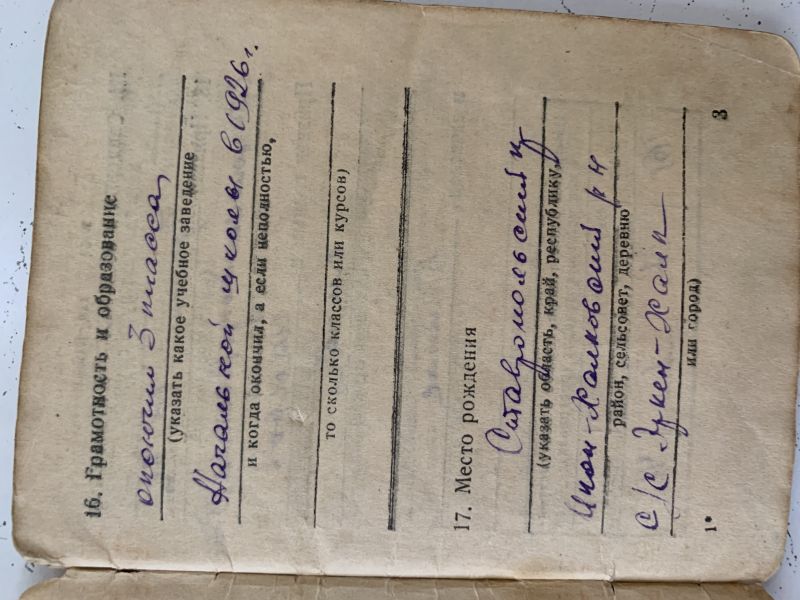 16. Грамотность и образование
окончил 3 класса,
(указать какое учебное заведение
Начальной школы в 1926 г.
и когда окончил, а если неполностью,
то сколько классов или курсов)
17. Место рождения
Ставропольский
(указать область, край, республику,
Икон-Халковский р н
район, сельсовет, деревню
с/с Эркен-Халк
или город)
1*
3